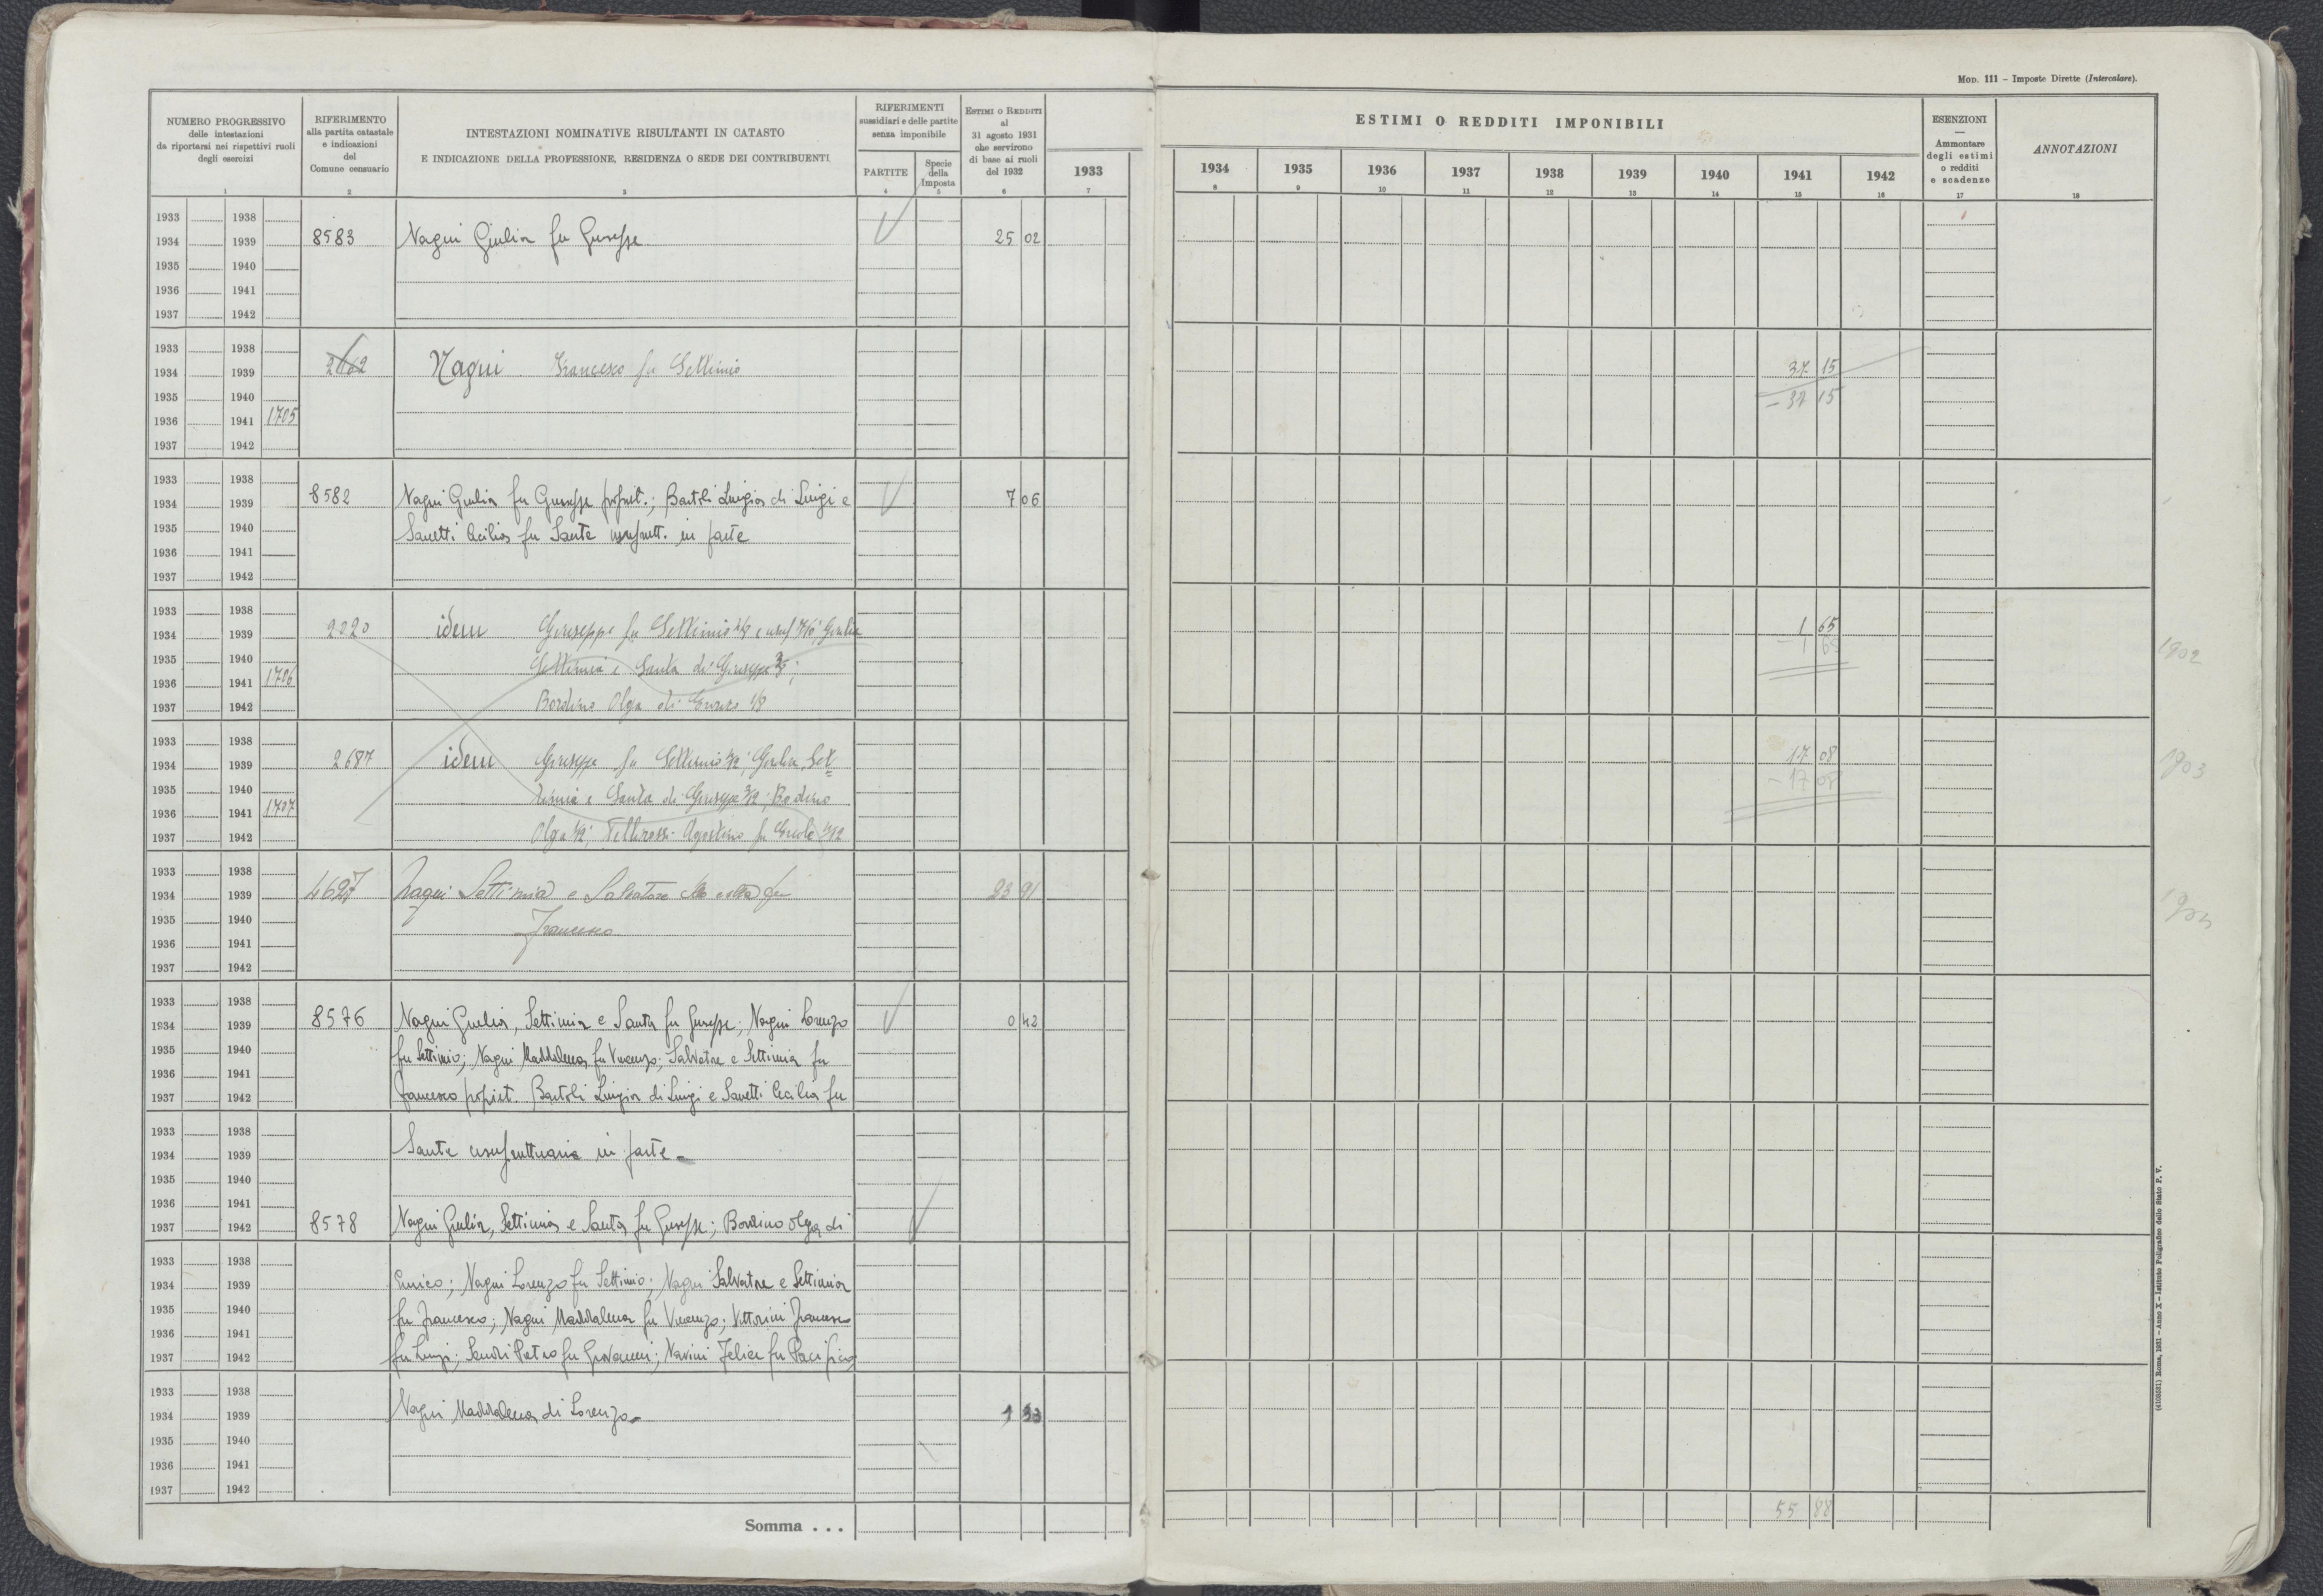 MOD. 111 – Imposte Dirette (Intercalare).
NUMERO PROGRESSIVO
delle intestazioni
da riportarsi nei rispettivi ruoli
degli esercizi
1
RIFERIMENTO
alla partita catastale
e indicazioni
del
Comune censuario
2
INTESTAZIONI NOMINATIVE RISULTANTI IN CATASTO
E INDICAZIONE DELLA PROFESSIONE, RESIDENZA O SEDE DEI CONTRIBUENTI
3
RIFERIMENTI
sussidiari e delle partite
senza imponibile
PARTITE
4
Specie
della
Imposta
5
ESTIMI O REDDITI
al
31 agosto 1931
che servirono
di base ai ruoli
del 1932
6
1933
7
ESTIMI O REDDITI IMPONIBILI
1934 1935 1936 1937 1938 1939 1940 1941 1942
8 9 10 11 12 13 14 15 16
ESENZIONI
—
Ammontare
degli estimi
o redditi
e scadenze
17
ANNOTAZIONI
18
1933 1938
1934 1939 8583 Nagni Giulia fu Giuseppe 25 02
1935 1940
1936 1941
1937 1942
1933 1938
1934 1939 2162 Nagni Francesco fu Settimio 37 15
1935 1940 – 37 15
1936 1941 1705
1937 1942
1933 1938
1934 1939 8582 Nagni Giulia fu Giuseppe propriet.; Bartoli Luigia di Luigi e 7 06
1935 1940 Sanetti Cecilia fu Sante usufrutt. in parte
1936 1941
1937 1942
1933 1938
1934 1939 2020 idem Giuseppe fu Settimio e usuf Giulia 1 65
1935 1940 Settimia e Santa di Giuseppe – 1 65
1936 1941 1706
1937 1942 Bordino Olga di Enrico 1/3
1902
1933 1938
1934 1939 2687 idem Giuseppe fu Settimio Giulia, Set= 17 08
1935 1940 timia e Santa di Giuseppe Bodino – 17 08
1936 1941 1707
1937 1942 Olga Agostino fu
1903
1933 1938
1934 1939 4627 Nagni Settimia e Salvatore fu 23 91
1935 1940 Francesco
1936 1941
1937 1942
1933 1938
1934 1939 8576 Nagni Giulia, Settimia e Santa fu Giuseppe; Nagni Lorenzo 0 42
1935 1940 fu Settimio; Nagni Maddalena fu Vincenzo; Salvatore e Settimia fu
1936 1941
1937 1942 Francesco propriet. Bartoli Luigia di Luigi e Sanetti Cecilia fu
1933 1938
1934 1939 Sante usufruttuaria in parte
1935 1940
1936 1941
1937 1942 8578 Nagni Giulia, Settimia e Santa fu Giuseppe; Bordino Olga di
1933 1938
1934 1939 Enrico; Nagni Lorenzo fu Settimio; Nagni Salvatore e Settimia
1935 1940
1936 1941 fu Francesco; Nagni Maddalena fu Vincenzo; Vittorini Francesco
1937 1942 fu Luigi; Pietro fu Giovanni; Felice fu Pacifico
1933 1938
1934 1939 Nagni Maddalena di Lorenzo
1935 1940
1936 1941
1937 1942
Somma . . . 55 88
(4108681) Roma, 1931 – Anno X – Istituto Poligrafico dello Stato P. V.